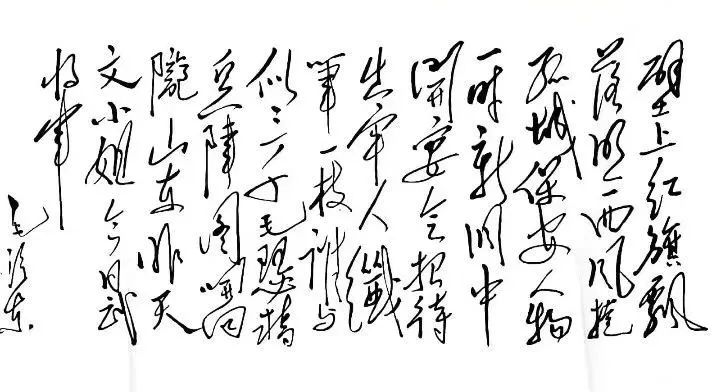 壁上红旗飘
落照西风捲
孤城保安人物
一时新洞中
開宴会招待
出牢人纖
筆一枝誰与
似三千毛瑟精
兵陣图開向
隴山东昨天
文小姐今日武
将軍
毛泽东